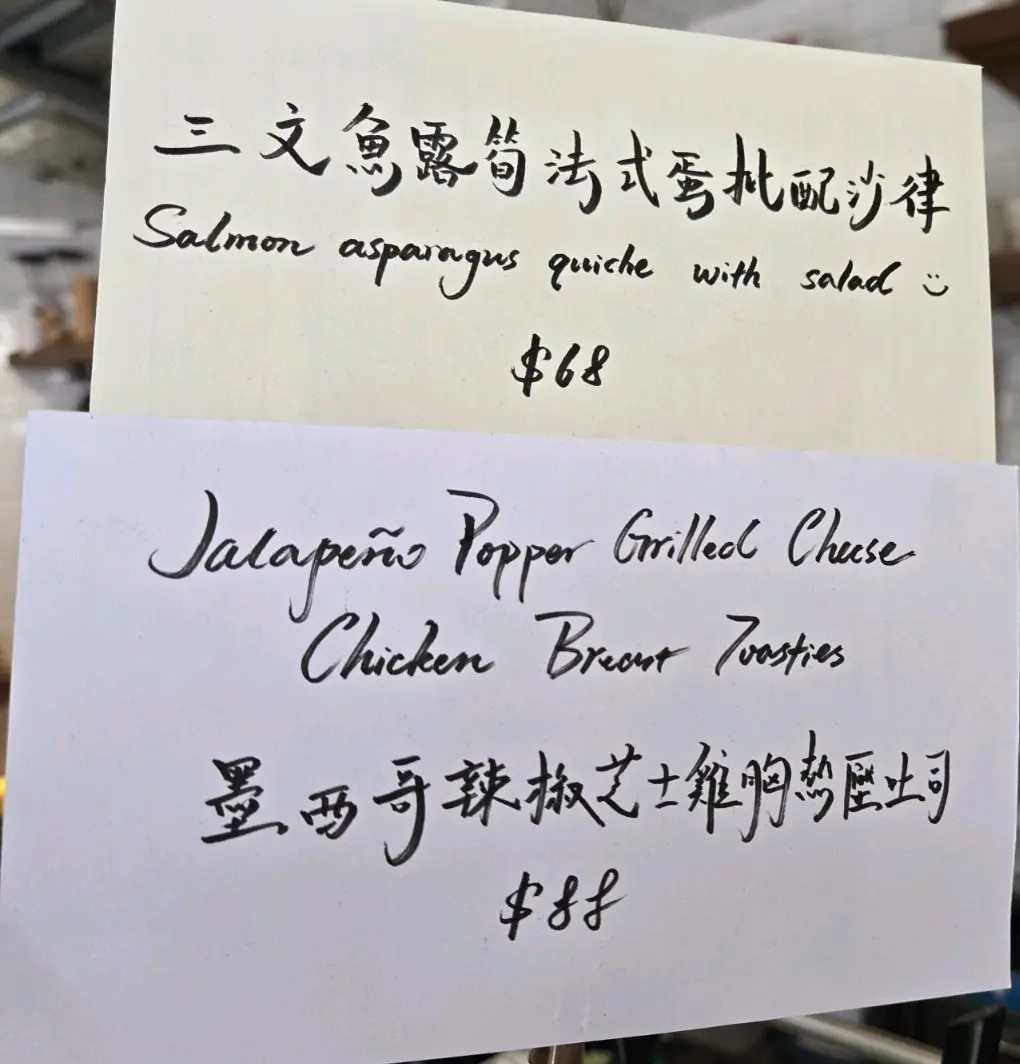 三文魚露筍法式蛋批配沙律
Salmon asparagus quiche with salad :)
$68
Jalapeño Popper Grilled Cheese
Chicken Breast Toasties
墨西哥辣椒芝士雞胸熱壓吐司
$88